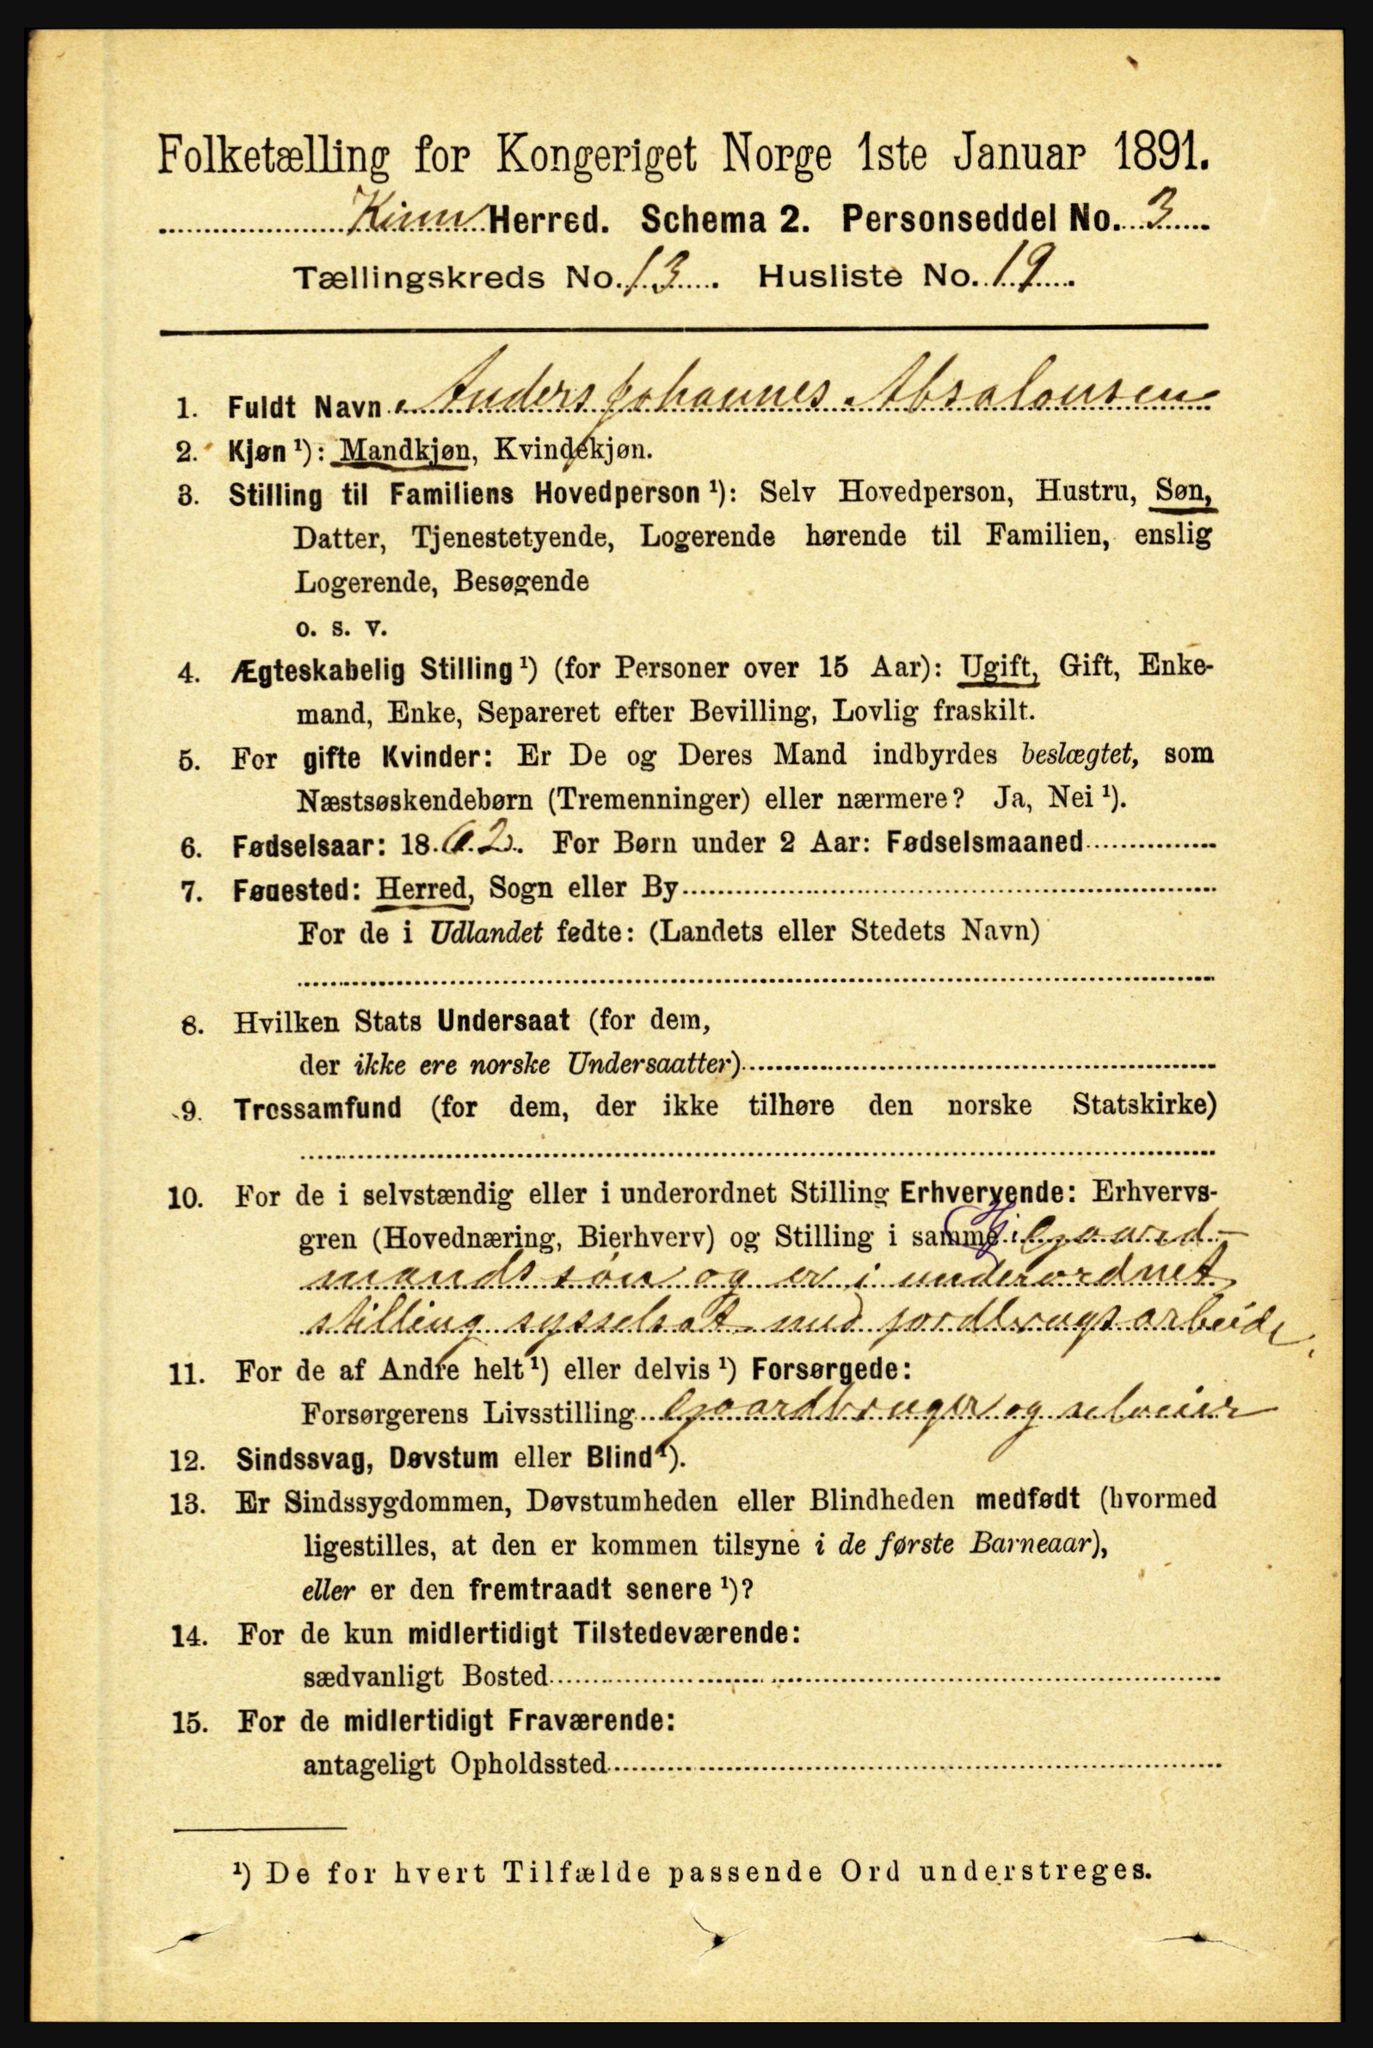 Folketælling for Kongeriget Norge 1ste Januar 1891.
Kinn Herred. Schema 2. Personseddel No. 3
Tællingskreds No. 13. Husliste No. 19.
1. Fuldt Navn Anders Johannes Absalonsen
2. Kjøn ¹): Mandkjøn, Kvindekjøn.
3. Stilling til Familiens Hovedperson ¹): Selv Hovedperson, Hustru, Søn,
Datter, Tjenestetyende, Logerende hørende til Familien, enslig
Logerende, Besøgende
o. s. v.
4. Ægteskabelig Stilling ¹) (for Personer over 15 Aar): Ugift, Gift, Enke-
mand, Enke, Separeret efter Bevilling, Lovlig fraskilt.
5. For gifte Kvinder: Er De og Deres Mand indbyrdes beslægtet, som
Næstsøskendebørn (Tremenninger) eller nærmere? Ja, Nei ¹).
6. Fødselsaar: 1862. For Børn under 2 Aar: Fødselsmaaned
7. Føuested: Herred, Sogn eller By
For de i Udlandet fødte: (Landets eller Stedets Navn)
8. Hvilken Stats Undersaat (for dem,
der ikke ere norske Undersaatter)
9. Trossamfund (for dem, der ikke tilhøre den norske Statskirke)
10. For de i selvstændig eller i underordnet Stilling Erhvervende: Erhvervs-
gren (Hovednæring, Bierhverv) og Stilling i samme: Gaard-
mandssøn og er i underordnet
stilling sysselsat med jordbrugsarbeide.
11. For de af Andre helt ¹) eller delvis ¹) Forsørgede:
Forsørgerens Livsstilling Gaardbruger og selveier
12. Sindssvag, Døvstum eller Blind ¹).
13. Er Sindssygdommen, Døvstumheden eller Blindheden medfødt (hvormed
ligestilles, at den er kommen tilsyne i de første Barneaar),
eller er den fremtraadt senere ¹)?
14. For de kun midlertidigt Tilstedeværende:
sædvanligt Bosted
15. For de midlertidigt Fraværende:
antageligt Opholdssted
¹) De for hvert Tilfælde passende Ord understreges.